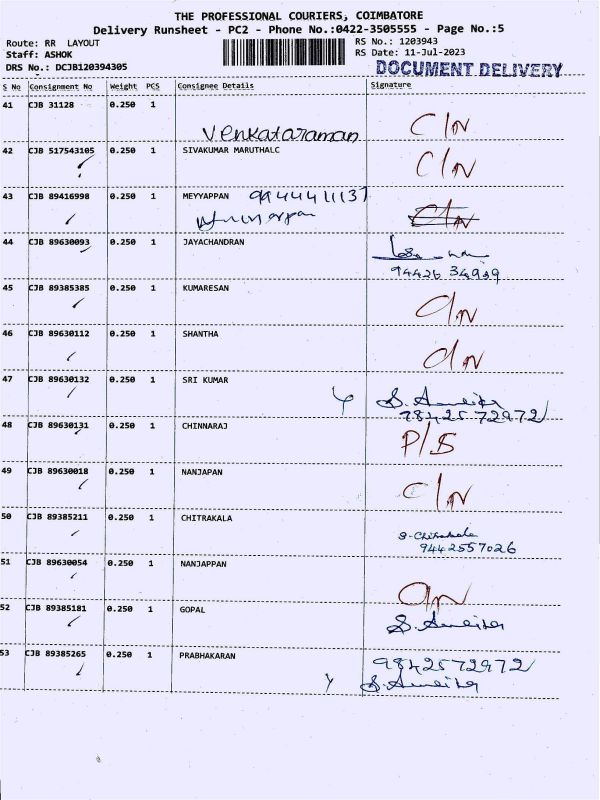 THE PROFESSIONAL COURIERS, COIMBATORE
Delivery Runsheet - PC2 - Phone No.:0422-3505555 - Page No.:5
Route: RR LAYOUT RS No.: 1203943
Staff: ASHOK RS Date: 11-Jul-2023
DRS No.: DCJB120394305 DOCUMENT DELIVERY
S No Consignment No Weight PCS Consignee Details Signature
41 CJB 31128 0.250 1 C/N
Venkataraman
42 CJB 517543105 0.250 1 SIVAKUMAR MARUTHALC C/N
43 CJB 89416998 0.250 1 MEYYAPPAN 9944411137
C/N
44 CJB 89630093 0.250 1 JAYACHANDRAN
94426 34939
45 CJB 89385385 0.250 1 KUMARESAN C/N
46 CJB 89630112 0.250 1 SHANTHA C/N
47 CJB 89630132 0.250 1 SRI KUMAR
7842572972
48 CJB 89630131 0.250 1 CHINNARAJ P/S
49 CJB 89630018 0.250 1 NANJAPAN C/N
50 CJB 89385211 0.250 1 CHITRAKALA
S-Chitrakala
9442557026
51 CJB 89630054 0.250 1 NANJAPPAN C/N
52 CJB 89385181 0.250 1 GOPAL
53 CJB 89385265 0.250 1 PRABHAKARAN 9842572972